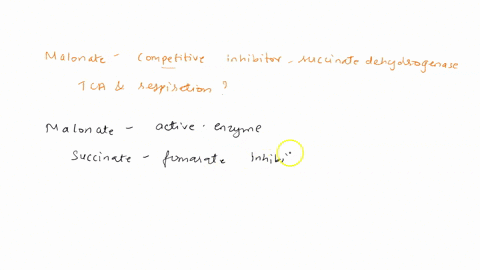 Malonate - competitive inhibitor - succinate dehydrogenase
TCA & respiration ?
Malonate - active. enzyme
Succinate - fumarate Inhibi